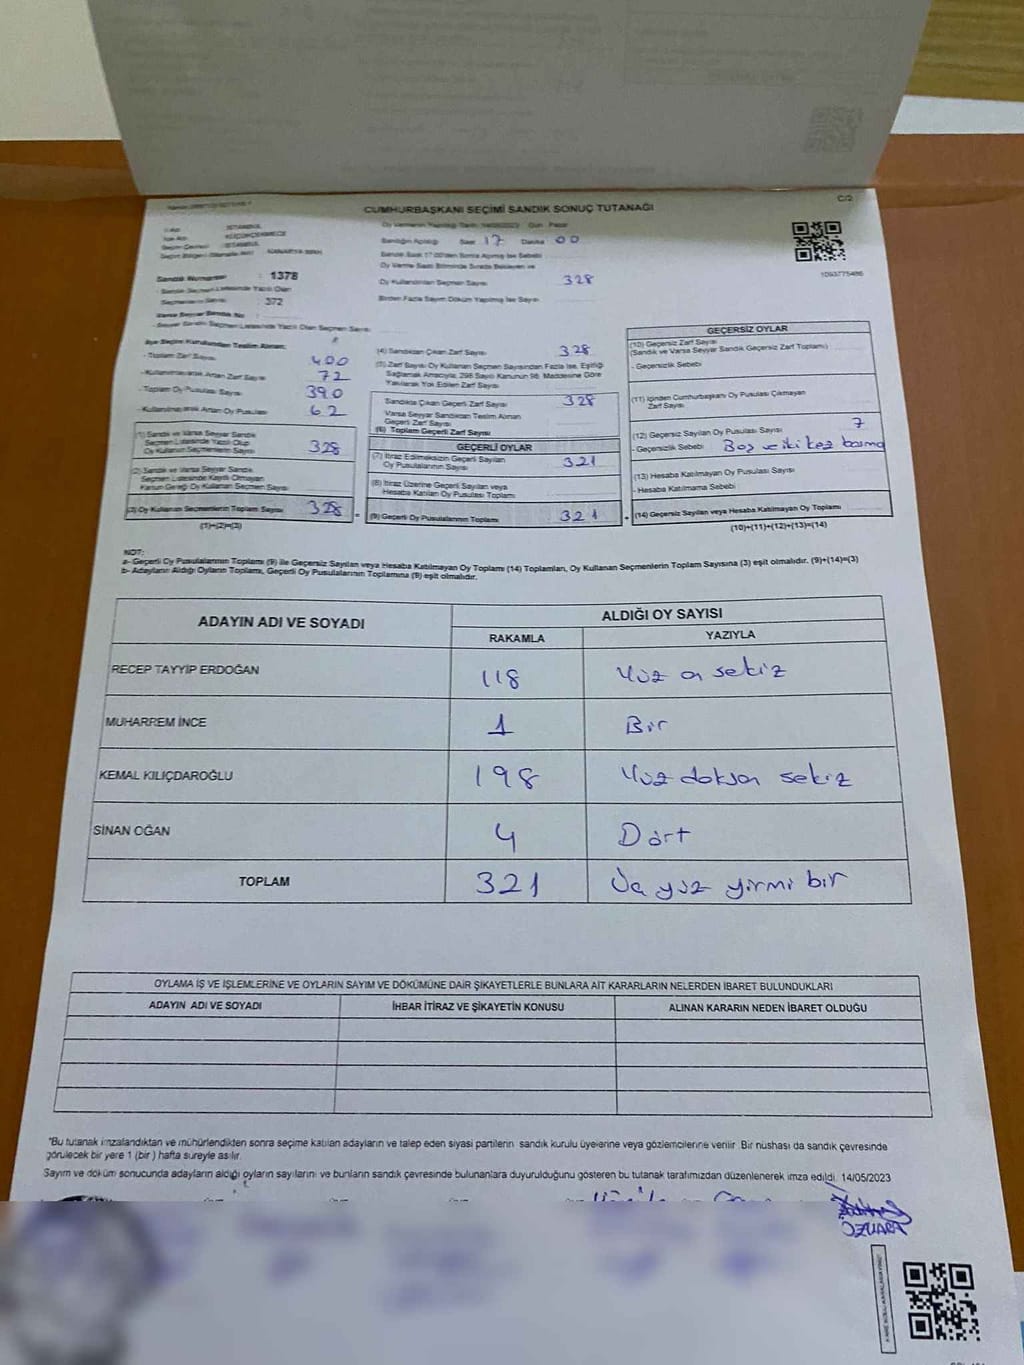 C/2
CUMHURBAŞKANI SEÇİMİ SANDIK SONUÇ TUTANAĞI
İSTANBUL
KÜÇÜKÇEKMECE
İSTANBUL
Sandığın Açıldığı Saat 17 Dakika 00
Oy Verme Saati Bitiminde Sırada Bekleyen ve
Oy Kullandırılan Seçmen Sayısı 328
Birden Fazla Sayım Döküm Yapılmış İse Sayısı
1093775486
Sandık Numarası : 1378
- Sandık Seçmen Listesinde Yazılı Olan
Seçmenlerin Sayısı : 372
Varsa Seyyar Sandık No
- Seyyar Sandık Seçmen Listesinde Yazılı Olan Seçmen Sayısı
İlçe Seçim Kurulundan Teslim Alınan;
- Toplam Zarf Sayısı 400
- Kullanılmayarak Artan Zarf Sayısı 72
- Toplam Oy Pusulası Sayısı 390
- Kullanılmayarak Artan Oy Pusulası 62
(1) Sandık ve Varsa Seyyar Sandık
Seçmen Listesinde Yazılı Olup
Oy Kullanan Seçmenlerin Sayısı 328
(2) Sandık ve Varsa Seyyar Sandık
Seçmen Listesinde Kayıtlı Olmayan
Kanun Gereği Oy Kullanan Seçmen Sayısı
(3) Oy Kullanan Seçmenlerin Toplam Sayısı 328
(1)+(2)=(3)
(4) Sandıktan Çıkan Zarf Sayısı 328
(5) Zarf Sayısı Oy Kullanan Seçmen Sayısından Fazla İse, Eşitliği
Sağlamak Amacıyla, 298 Sayılı Kanunun 98. Maddesine Göre
Yakılarak Yok Edilen Zarf Sayısı
Sandıkta Çıkan Geçerli Zarf Sayısı 328
Varsa Seyyar Sandıktan Teslim Alınan
Geçerli Zarf Sayısı
(6) Toplam Geçerli Zarf Sayısı
GEÇERLİ OYLAR
(7) İtiraz Edilmeksizin Geçerli Sayılan
Oy Pusulalarının Sayısı 321
(8) İtiraz Üzerine Geçerli Sayılan veya
Hesaba Katılan Oy Pusulası Toplamı
(9) Geçerli Oy Pusulalarının Toplamı 321
GEÇERSİZ OYLAR
(10) Geçersiz Zarf Sayısı
(Sandık ve Varsa Seyyar Sandık Geçersiz Zarf Toplamı)
- Geçersizlik Sebebi
(11) İçinden Cumhurbaşkanı Oy Pusulası Çıkmayan
Zarf Sayısı
(12) Geçersiz Sayılan Oy Pusulası Sayısı 7
- Geçersizlik Sebebi Boş ve iki kez basma
(13) Hesaba Katılmayan Oy Pusulası Sayısı
- Hesaba Katılmama Sebebi
(14) Geçersiz Sayılan veya Hesaba Katılmayan Oy Toplamı
(10)+(11)+(12)+(13)=(14)
NOT:
a- Geçerli Oy Pusulalarının Toplamı (9) ile Geçersiz Sayılan veya Hesaba Katılmayan Oy Toplamı (14) Toplamları, Oy Kullanan Seçmenlerin Toplam Sayısına (3) eşit olmalıdır. (9)+(14)=(3)
b- Adayların Aldığı Oyların Toplamı, Geçerli Oy Pusulalarının Toplamına (9) eşit olmalıdır.
ADAYIN ADI VE SOYADI
ALDIĞI OY SAYISI
RAKAMLA YAZIYLA
RECEP TAYYİP ERDOĞAN 118 Yüz on sekiz
MUHARREM İNCE 1 Bir
KEMAL KILIÇDAROĞLU 198 Yüz doksan sekiz
SİNAN OĞAN 4 Dört
TOPLAM 321 Üç yüz yirmi bir
OYLAMA İŞ VE İŞLEMLERİNE VE OYLARIN SAYIM VE DÖKÜMÜNE DAİR ŞİKAYETLERLE BUNLARA AİT KARARLARIN NELERDEN İBARET BULUNDUKLARI
ADAYIN ADI VE SOYADI İHBAR İTİRAZ VE ŞİKAYETİN KONUSU ALINAN KARARIN NEDEN İBARET OLDUĞU
*Bu tutanak imzalandıktan ve mühürlendikten sonra seçime katılan adayların ve talep eden siyasi partilerin sandık kurulu üyelerine veya gözlemcilerine verilir. Bir nüshası da sandık çevresinde
görülecek bir yere 1 (bir) hafta süreyle asılır.
Sayım ve döküm sonucunda adayların aldığı oyların sayılarını ve bunların sandık çevresinde bulunanlara duyurulduğunu gösteren bu tutanak tarafımızdan düzenlenerek imza edildi. 14/05/2023
ÖZKARA